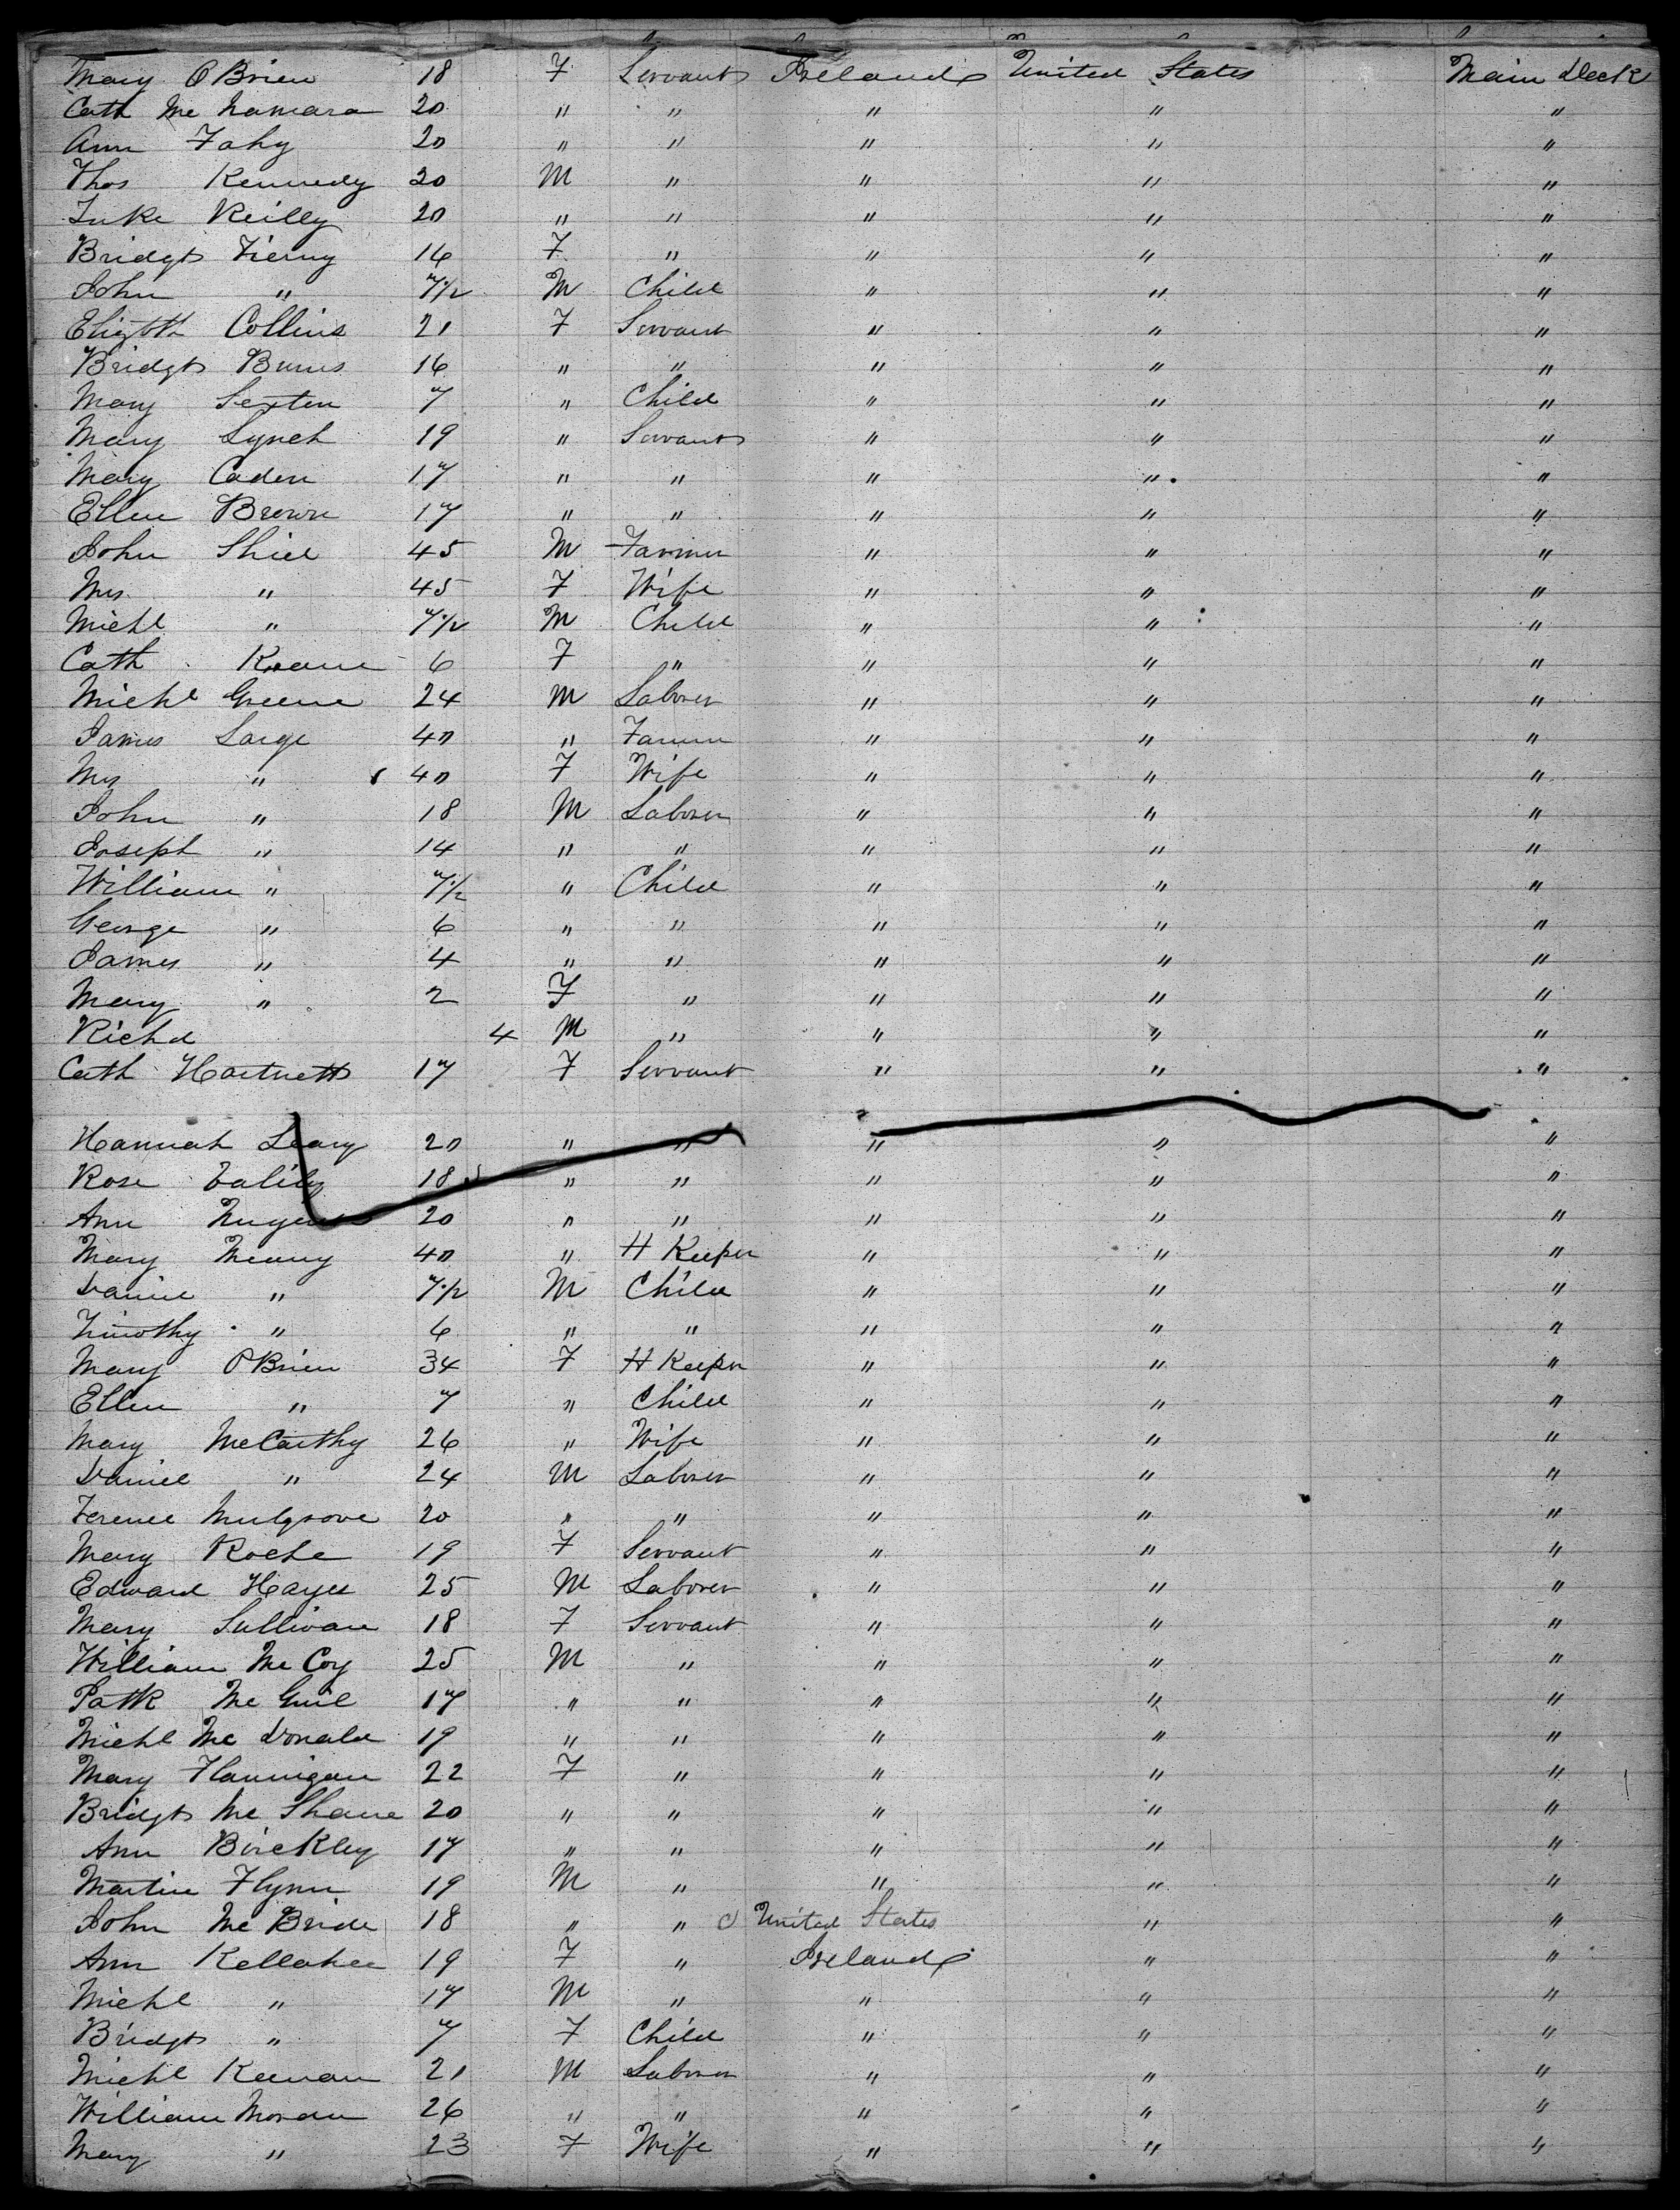 Mary O'Brien 18 F Servant Ireland United States Main Deck
Cath McNamara 20 " " " " "
Ann Fahy 20 " " " " "
Thos Kennedy 20 M " " " "
Luke Reilly 20 " " " " "
Bridgt Tierny 16 F " " " "
John " 7½ M Child " " "
Elizbth Collins 21 F Servant " " "
Bridgt Burns 16 " " " " "
Mary Sexten 7 " Child " " "
Mary Lynch 19 " Servant " " "
Mary Caden 17 " " " " "
Ellen Brown 17 " " " " "
John Shiel 45 M Farmer " " "
Mrs " 45 F Wife " " "
Michl " 7½ M Child " " "
Cath Keane 6 F " " " "
Michl Greene 24 M Laborer " " "
James Large 40 " Farmer " " "
Mrs " 40 F Wife " " "
John " 18 M Laborer " " "
Joseph " 14 " " " " "
William " 7½ " Child " " "
George " 6 " " " " "
James " 4 " " " " "
Mary " 2 F " " " "
Richd 4 M " " " "
Cath Hartnett 17 F Servant " " "
Hannah Leary 20 " " " " "
Rose 18 " " " " "
Ann Nugent 20 " " " " "
Mary Meany 40 " H Keeper " " "
Daniel " 7½ M Child " " "
Timothy " 6 " " " " "
Mary O'Brien 34 F H Keeper " " "
Ellen " 7 " Child " " "
Mary McCarthy 26 " Wife " " "
Daniel " 24 M Laborer " " "
Terence Mulgrove 20 " " " " "
Mary Roche 19 F Servant " " "
Edward Hayes 25 M Laborer " " "
Mary Sullivan 18 F Servant " " "
William McCoy 25 M " " " "
Patk McGuil 17 " " " " "
Michl McDonald 19 " " " " "
Mary Flannigan 22 F " " " "
Bridgt McShane 20 " " " " "
Ann Birckley 17 " " " " "
Martin Flynn 19 M " " " "
John McBride 18 " " United States " "
Ann Kellaher 19 F " Ireland " "
Michl " 17 M " " " "
Bridgt " 7 F Child " " "
Michl Keenan 21 M Laborer " " "
William Moran 26 " " " " "
Mary " 23 F Wife " " "